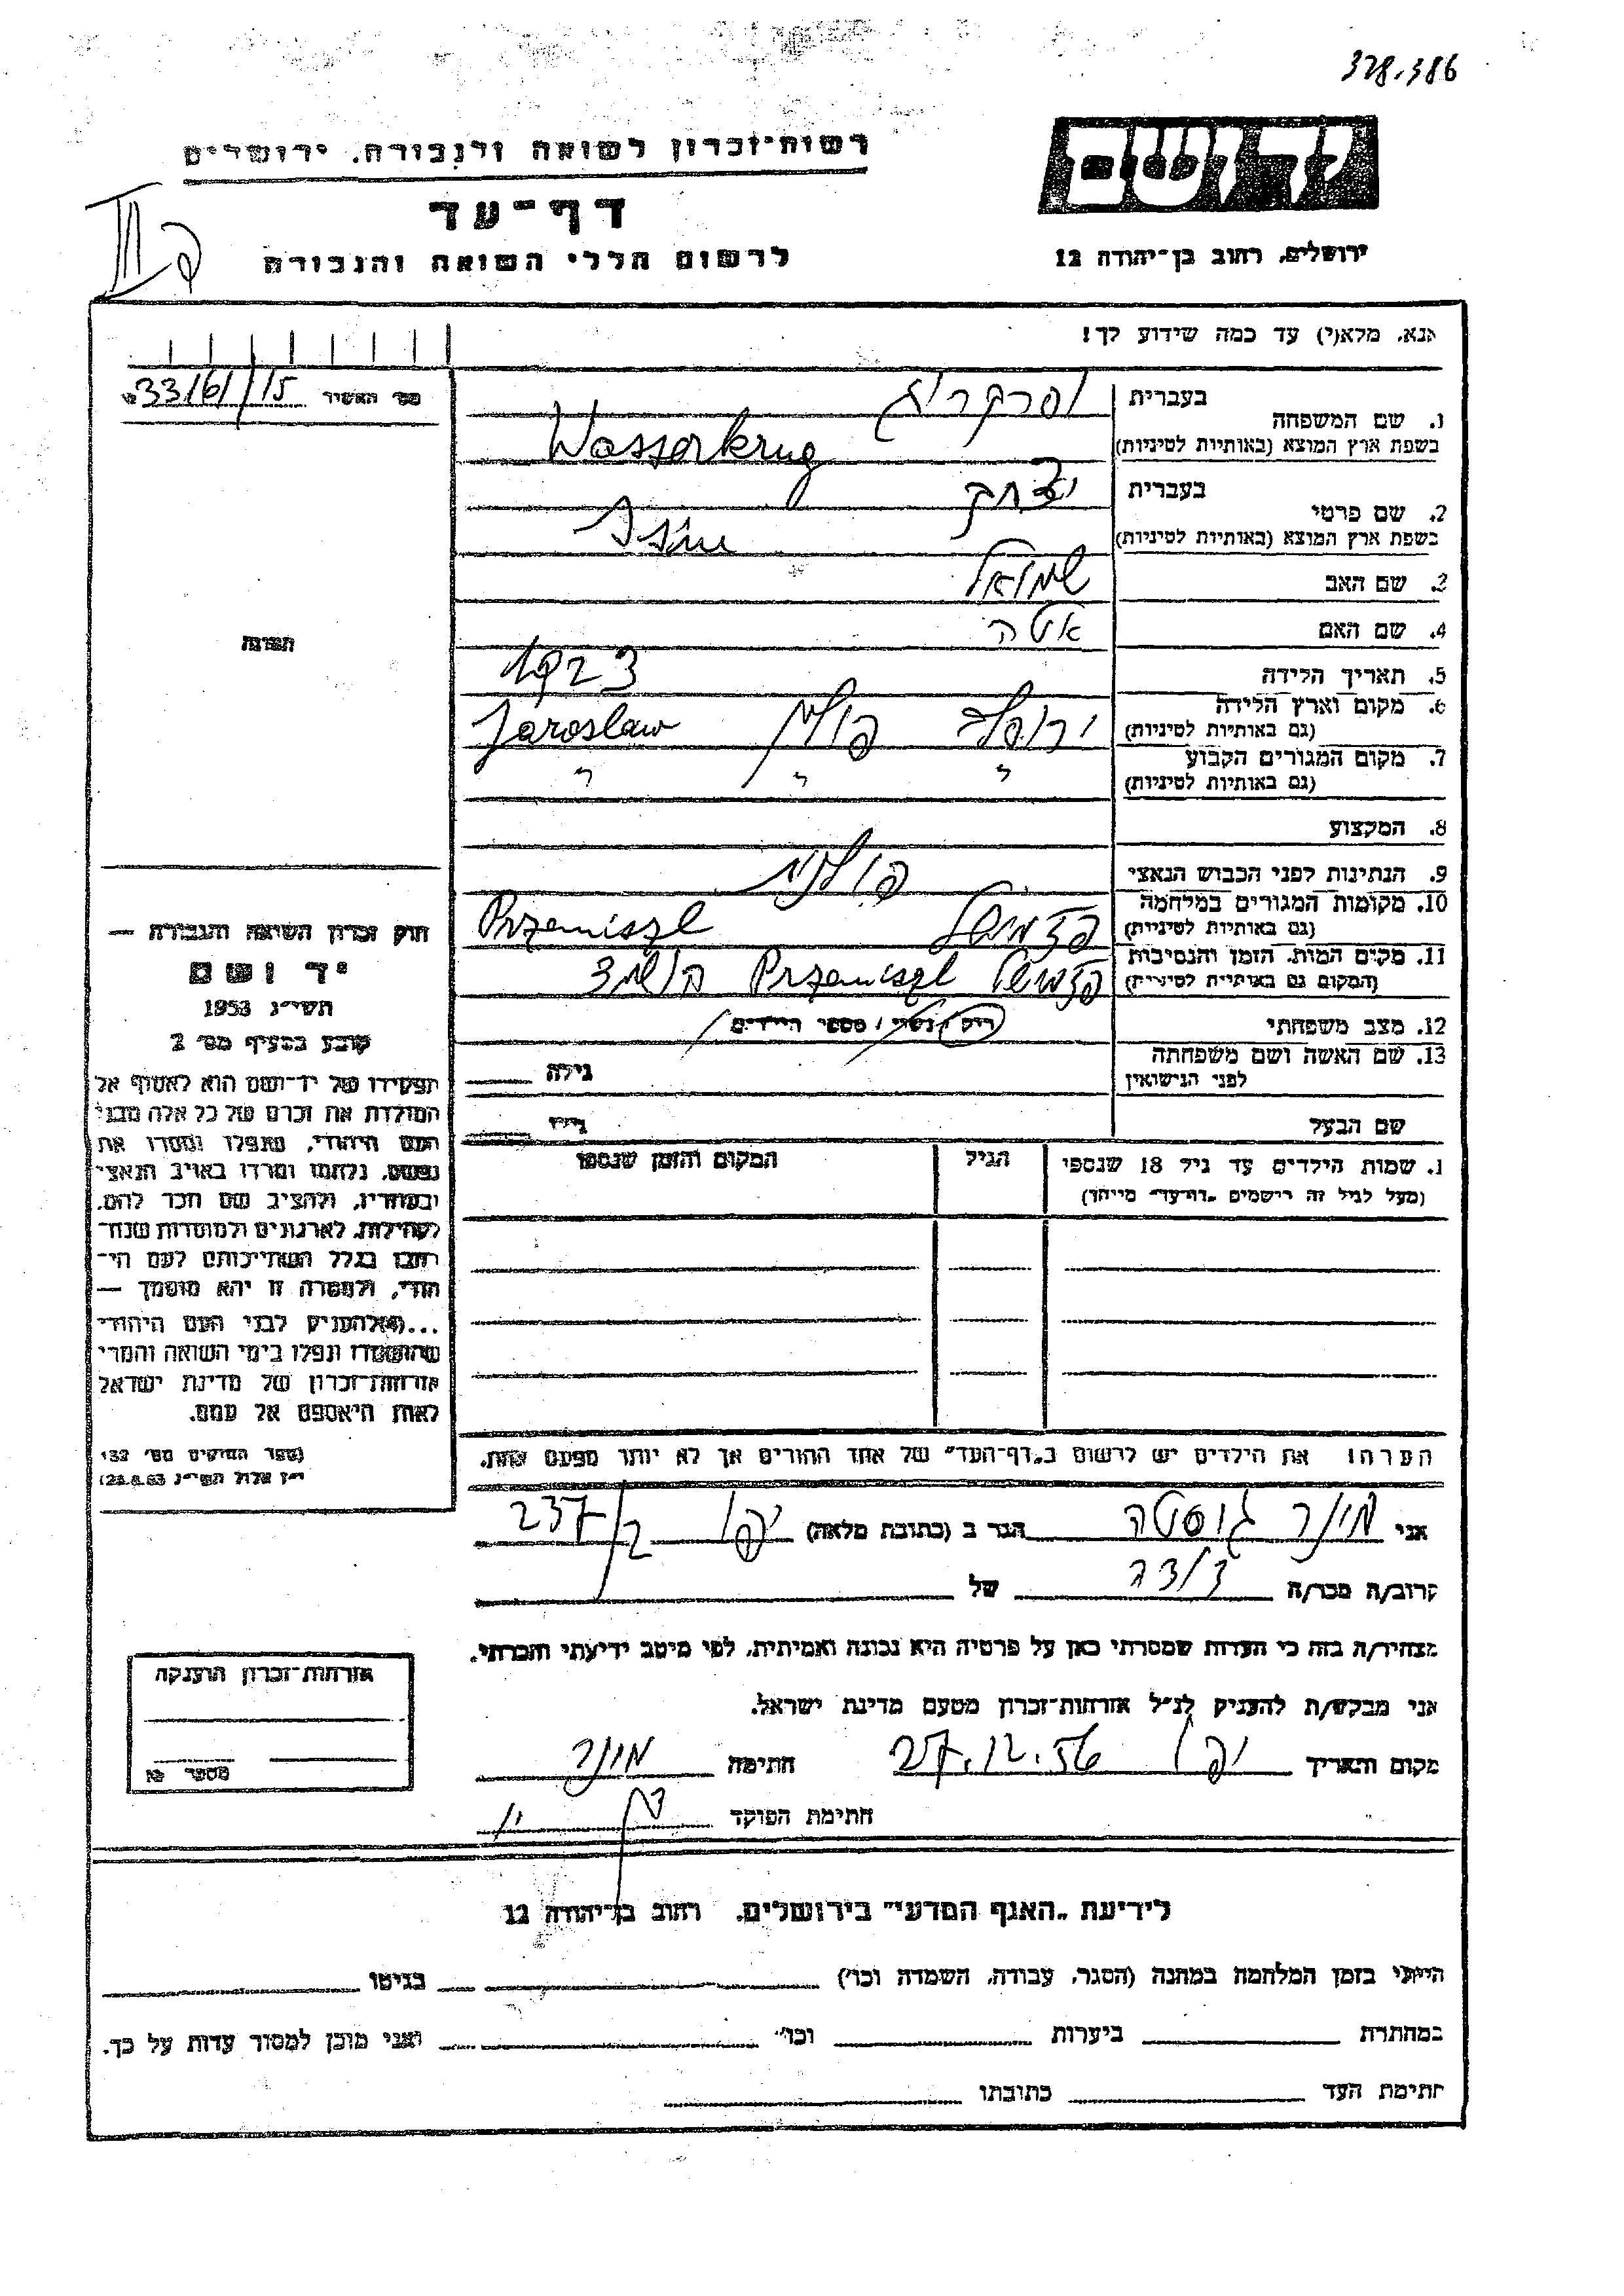 328.386
רשות־זכרון לשואה ולגבורה. ירושלים
יד ושם
דף־עד
לרשום חללי השואה והגבורה
ירושלים, רחוב בן־יהודה 12
אנא, מלא(י) עד כמה שידוע לך!
מס׳ האשיר 33/61/15
1. שם המשפחה
בעברית וסרקרוג
בשפת ארץ המוצא (באותיות לטיניות) Wasserkrug
2. שם פרטי
בעברית יצחק
בשפת ארץ המוצא (באותיות לטיניות)
3. שם האב שמואל
4. שם האם אטה
5. תאריך הלידה 1923
6. מקום וארץ הלידה
(גם באותיות לטיניות) פולין Jaroslaw
7. מקום המגורים הקבוע
(גם באותיות לטיניות) " " "
8. המקצוע
9. הנתינות לפני הכבוש הנאצי פולנית
10. מקומות המגורים במלחמה
(גם באותיות לטיניות) פשמישל Przemiszl
11. מקום המות, הזמן והנסיבות
(המקום גם באותיות לטיניות) פשמישל Przemiszl
12. מצב משפחתי רווק / נשוי / מספר הילדים
13. שם האשה ושם משפחתה
לפני הנישואין גילה
שם הבעל גילו
1. שמות הילדים עד גיל 18 שנספו הגיל המקום והזמן שנספו
(מעל לגיל זה רישמים "דף־עד" מייחד)
הערה: את הילדים יש לרשום ב"דף־העד" של אחד ההורים אך לא יותר מפעם אחת.
תמונה
חוק זכרון השואה והגבורה —
יד ושם
תשי״ג 1953
קובע בסעיף מס׳ 2
תפקידו של יד־ושם הוא לאסוף אל
המולדת את זכרם של כל אלה מבני
העם היהודי, שנפלו ומסרו את
נפשם, נלחמו ומרדו באויב הנאצי
ובעוזריו, ולהציב שם וזכר להם,
לקהילות, לארגונים ולמוסדות שנח־
רבו בגלל השתייכותם לעם הי־
הודי, ולמטרה זו יהא מוסמך —
...(4) להעניק לבני העם היהודי
שהושמדו ונפלו בימי השואה והמרי
אזרחות־זכרון של מדינת ישראל
לאות היאספם אל עמם.
(ספר החוקים מס׳ 132
י״ז אלול תשי״ג 28.8.53)
אני מונר גוסטה הגר ב (כתובת מלאה) יפו 237
קרוב/ה מכר/ה של
מצהיר/ה בזה כי העדות שמסרתי כאן על פרטיה היא נכונה ואמיתית, לפי מיטב ידיעתי והכרתי.
אני מבקש/ת להעניק לנ״ל אזרחות־זכרון מטעם מדינת ישראל.
מקום ותאריך יפו 27.12.56 חתימה מונר
חתימת הפוקד
אזרחות־זכרון הוענקה
מספר
לידיעת "האגף המדעי" בירושלים, רחוב בן־יהודה 12
הייתי בזמן המלחמה במחנה (הסגר, עבודה, השמדה וכו׳) בגיטו
במחתרת ביערות וכו׳ ואני מוכן למסור עדות על כך.
חתימת העד כתובתו